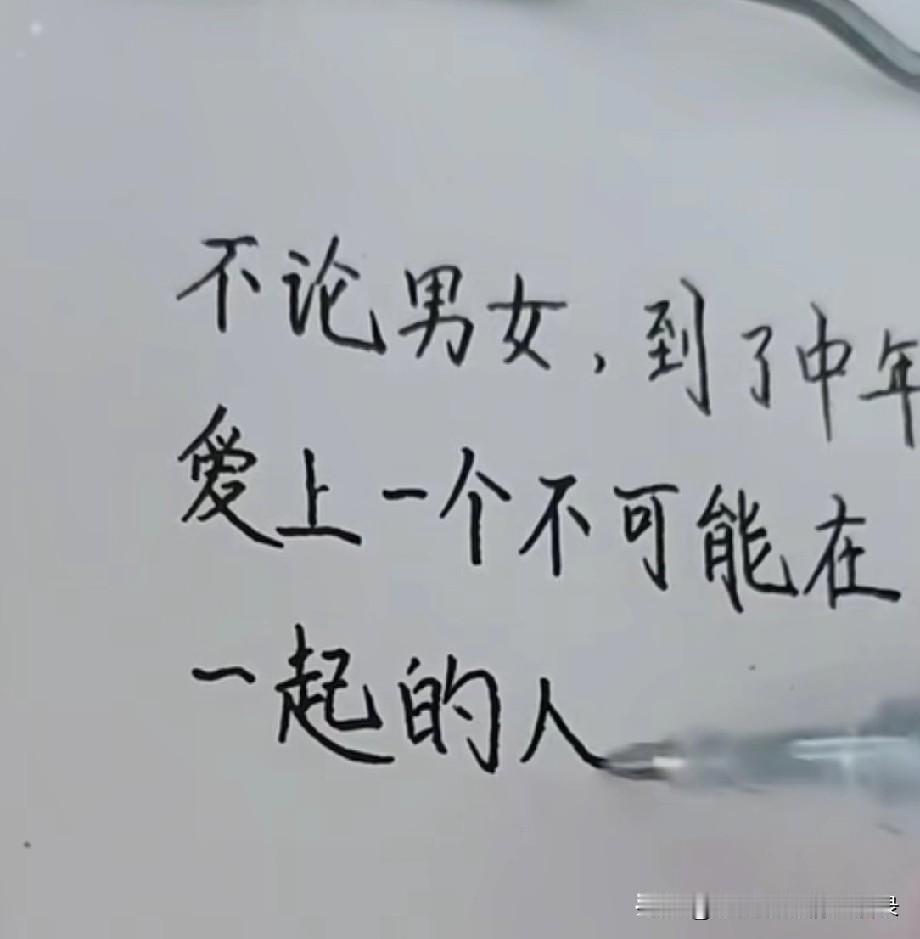 不论男女,到了中年
爱上一个不可能在
一起的人